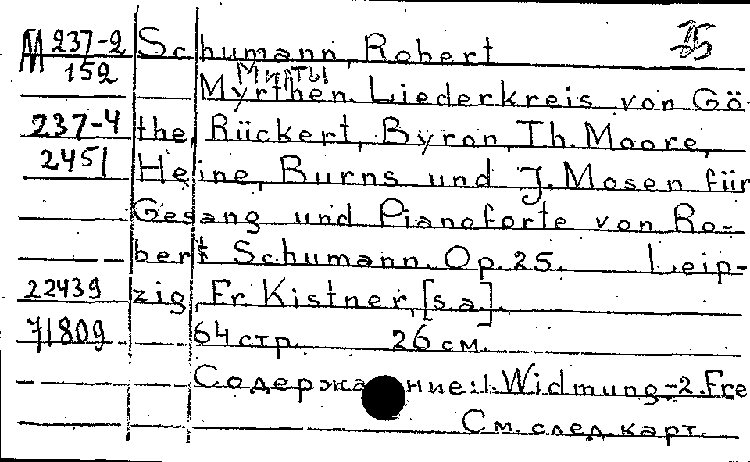 M 237-2 Schumann, Robert 25
152 Мирты
Myrthen. Liederkreis von Gö-
237-4 the, Rückert, Byron, Th. Moore,
2451 Heine, Burns und J. Mosen für
Gesang und Pianoforte von Ro-
bert Schumann. Op. 25. Leip-
22439 zig, Fr. Kistner, [s.a.].
71809 64 стр. 26 см.
Содержание: 1. Widmung.-2. Fre
См. след. карт.